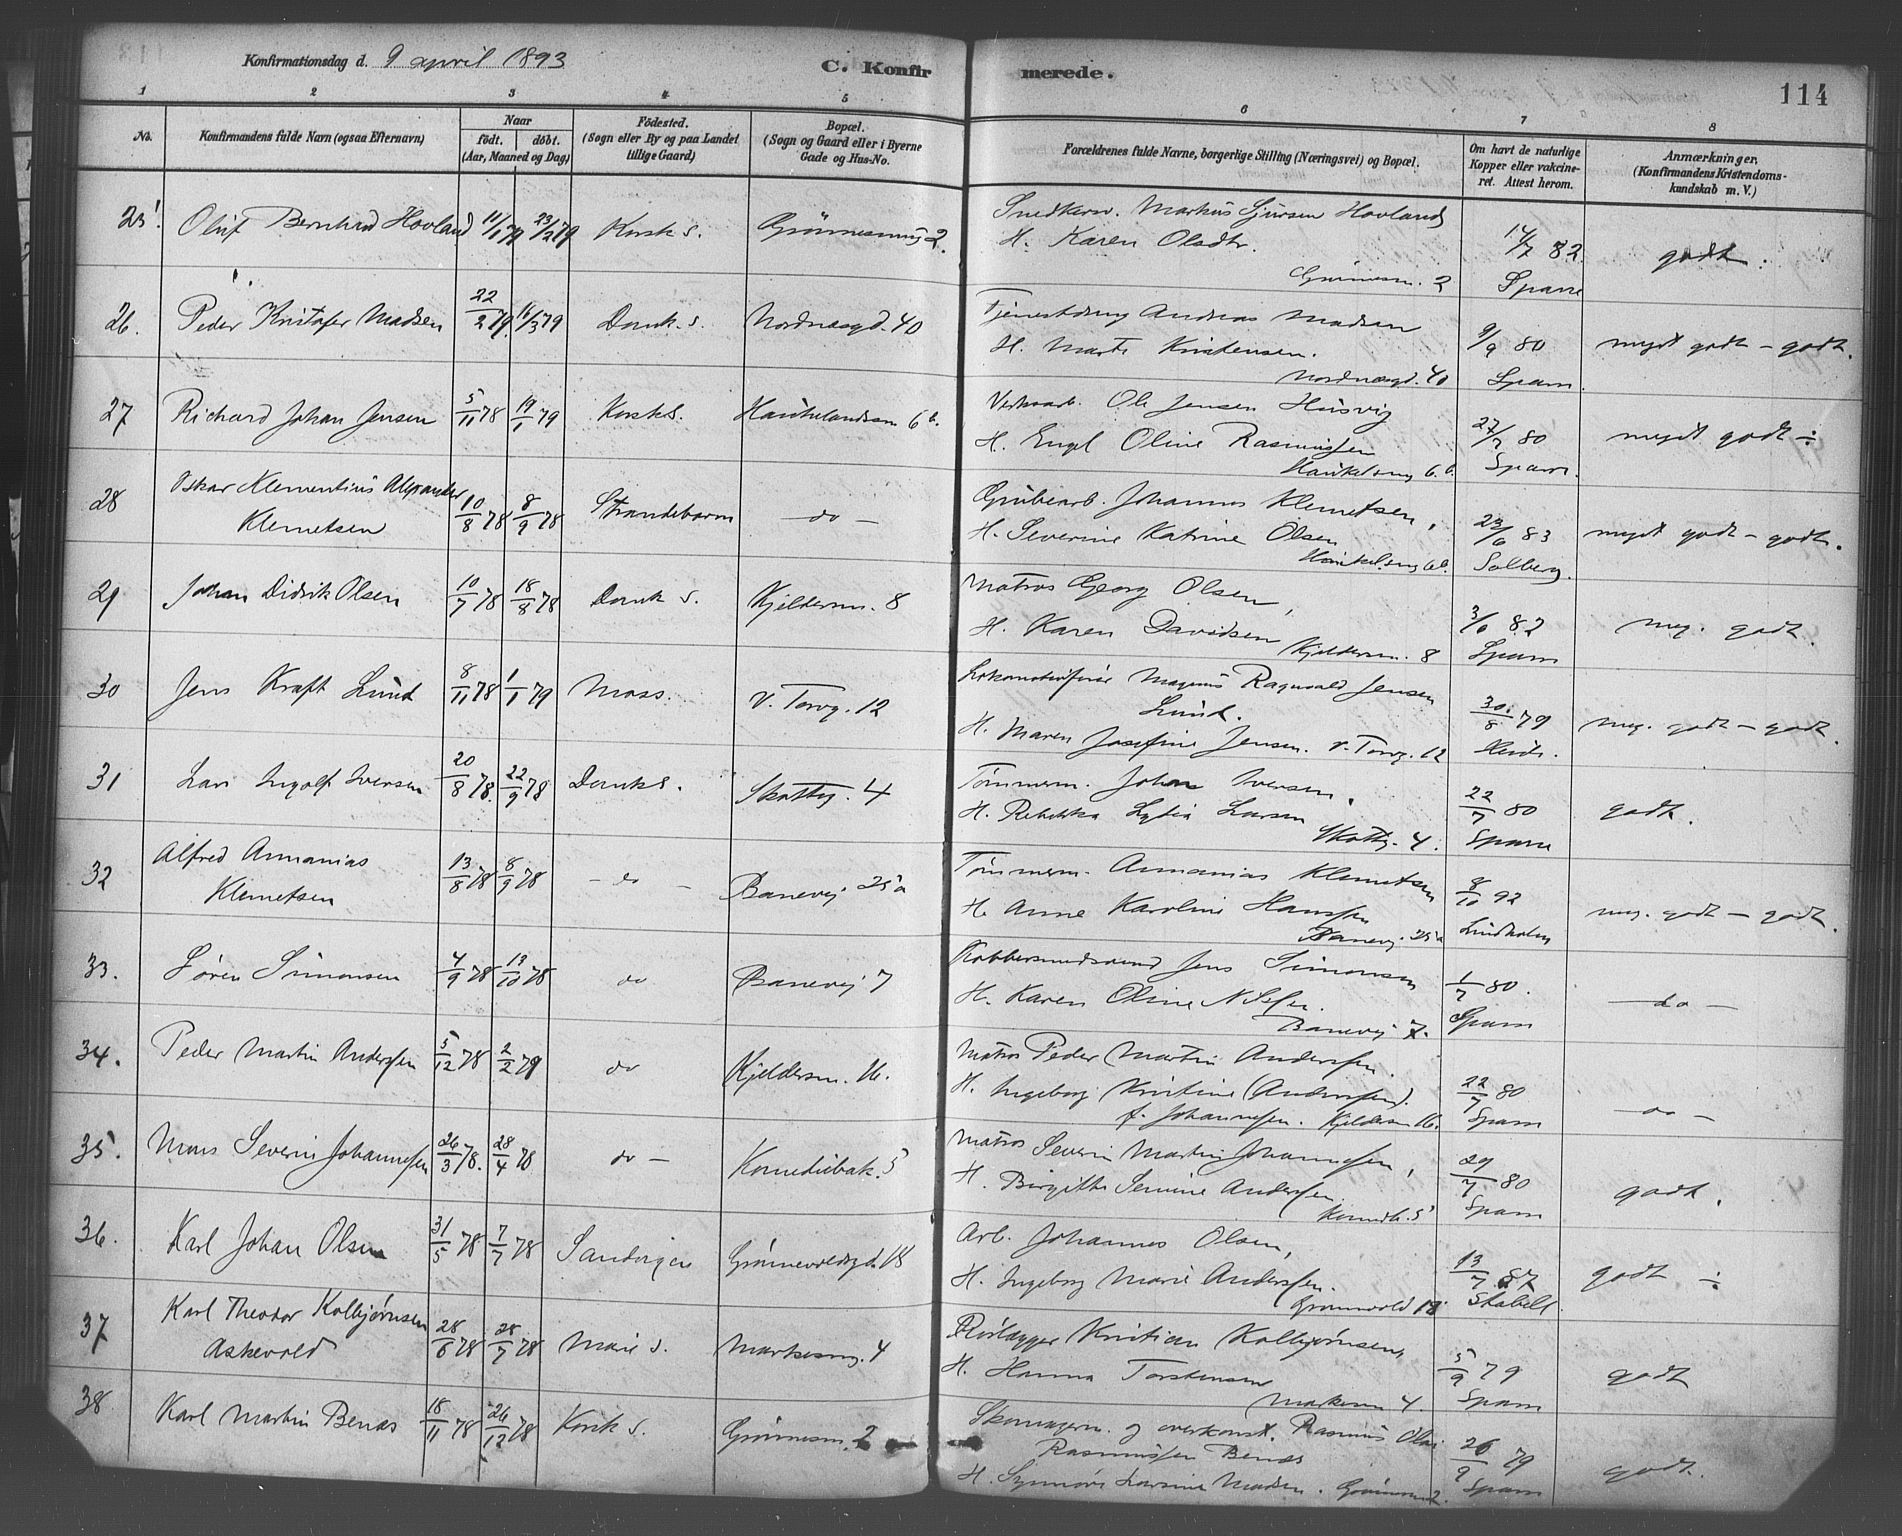 Konfirmationsdag d. 9 april 1893
C. Konfir merede.
114
1 2 3 4 5 6 7 8
No.
Konfirmandens fulde Navn (ogsaa Efternavn)
Naar
födt. döbt.
(Aar, Maaned og Dag)
Födested.
(Sogn eller By og paa Landet
tillige Gaard)
Bopæl.
(Sogn og Gaard eller i Byerne
Gade og Hus-No.
Forældrenes fulde Navne, borgerlige Stilling (Næringsvei) og Bopæl.
Om havt de naturlige
Kopper eller vakcine-
ret. Attest herom.
Anmærkninger.
(Konfirmandens Kristendoms-
kundskab m. V.)
25. Oluf Bernhard Hovland 11/1 79 23/2 79 Korsk S. Grönnesmug 2.
Snedkersv. Markus Sjursen Hovland
H. Karen Olsdtr.
Grönnesm. 2
14/7 82
Sparre
godt.
26. Peder Kristofer Madsen 22/2 79. 16/3 79 Domk. S. Nordnæsgd. 40
Tjenestdreng Andreas Madsen
H. Marte Kristensen.
Nordnæsgd. 40
9/9 80
Sparre.
meget godt - godt.
27 Richard Johan Jensen 5/11 78 19/1 79 Korsk S. Haukelandsm 6 b.
Verksarb. Ole Jensen Husvig
H. Engel Oline Rasmussen
Haukelsmug 6 b.
27/7 80
Sparre.
meget godt ÷
28 Oskar Klementius Alexander
Klemetsen 10/8 78 8/9 78 Strandebarm - do -
Grubearb. Johannes Klemetsen,
H. Severine Katrine Olsen
Haukelsmug 6 b.
23/6 83
Solberg.
meget godt - godt.
29 Johan Didrik Olsen 10/7 78 18/8 78 Domk S. Kjeldersm. 8
Matros Georg Olsen,
H. Karen Davidsen Kjeldersm. 8
3/6 82
Sparre
meg. godt.
30 Jens Kraft Lund 8/11 78 1/1 79 Moss. V. Torvg. 12
Lokomotivförer Magnus Ragnvald Jensen
Lund.
H. Maren Josefine Jensen. V. Torvg. 12
30/8 79
meg. godt - godt.
31 Lars Ingolf Iversen 20/8 78. 22/9 78 Domk S. Skottg. 4
Tømmerm. Johan Iversen.
H. Rebekka Lydia Larsen
Skottg. 4.
22/7 80
Sparre
godt.
32 Alfred Annanias
Klemetsen 13/8 78 8/9 78 - do - Banevej 25 a
Tømmerm. Annanias Klemetsen
H. Anne Karoline Hanssen
Banevej. 25 a
8/10 92
Lindholm
meg. godt - godt.
33. Søren Simonsen 4/9 78 13/10 78 do Banevej 7
Kobbersmedsvend Jens Simonsen
H. Karen Oline Nilsen.
Banevej 7.
1/7 80.
Sparre
- do -
34. Peder Martin Anderssen 5/12 78 2/2 79 do Kjeldersm. 16.
Matros Peder Martin Anderssen.
H. Ingeborg Kristine (Anderssen).
f. Johannessen. Kjeldersm 16.
22/7 80
Sparre
- do -
35. Mons Severin Johannessen 26/3 78. 28/4 78 do - Komediebak. 5
Matros Severin Martin Johannessen,
H. Birgitte Semine Anderssen.
Komedb. 5
29/7 80
Sparre
godt.
36. Karl Johan Olsen 31/5 78 7/7 78 Sandvigen Grønnevoldsgd. 18
Arb. Johannes Olsen,
H. Ingeborg Marie Anderssen.
Grønnevold 18.
13/7 87
Stabell.
godt ÷
37 Karl Theodor Kolbjørnsen
Askevold 28/6 78 28/7 78 Marie S. Markesmg. 4
Rörlægger Kristian Kolbjørnsen,
H. Hanna Torstensen
Markesm 4.
5/9 79
Sparre
godt
38. Karl Martin Benæs 18/11 78 26/12 78 Korsk S. Grönnesm. 2
Skomagerm. og overkonst. Rasmus Olai
Rasmussen Benæs
H. Synnöve Larsine Madsen. Grönnesm 2.
26/9 79
Sparre
godt.